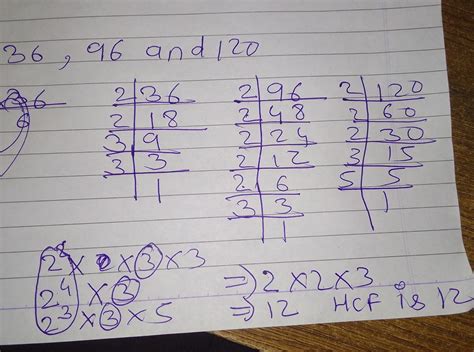 36, 96 and 120
36
6
2 | 36
2 | 18
3 | 9
3 | 3
1
2 | 96
2 | 48
2 | 24
2 | 12
2 | 6
3 | 3
1
2 | 120
2 | 60
2 | 30
3 | 15
5 | 5
1
× 3 × 3
2⁴ × 3
2³ × 3 × 5
⇒ 2 × 2 × 3
⇒ 12 HCF is 12